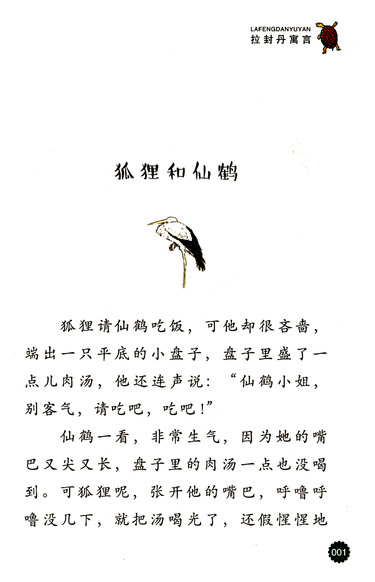 LAFENGDANYUYAN
拉封丹寓言
狐狸和仙鹤
狐狸请仙鹤吃饭，可他却很吝啬，
端出一只平底的小盘子，盘子里盛了一
点儿肉汤，他还连声说：“仙鹤小姐，
别客气，请吃吧，吃吧！”
仙鹤一看，非常生气，因为她的嘴
巴又尖又长，盘子里的肉汤一点也没喝
到。可狐狸呢，张开他的嘴巴，呼噜呼
噜没几下，就把汤喝光了，还假惺惺地
001